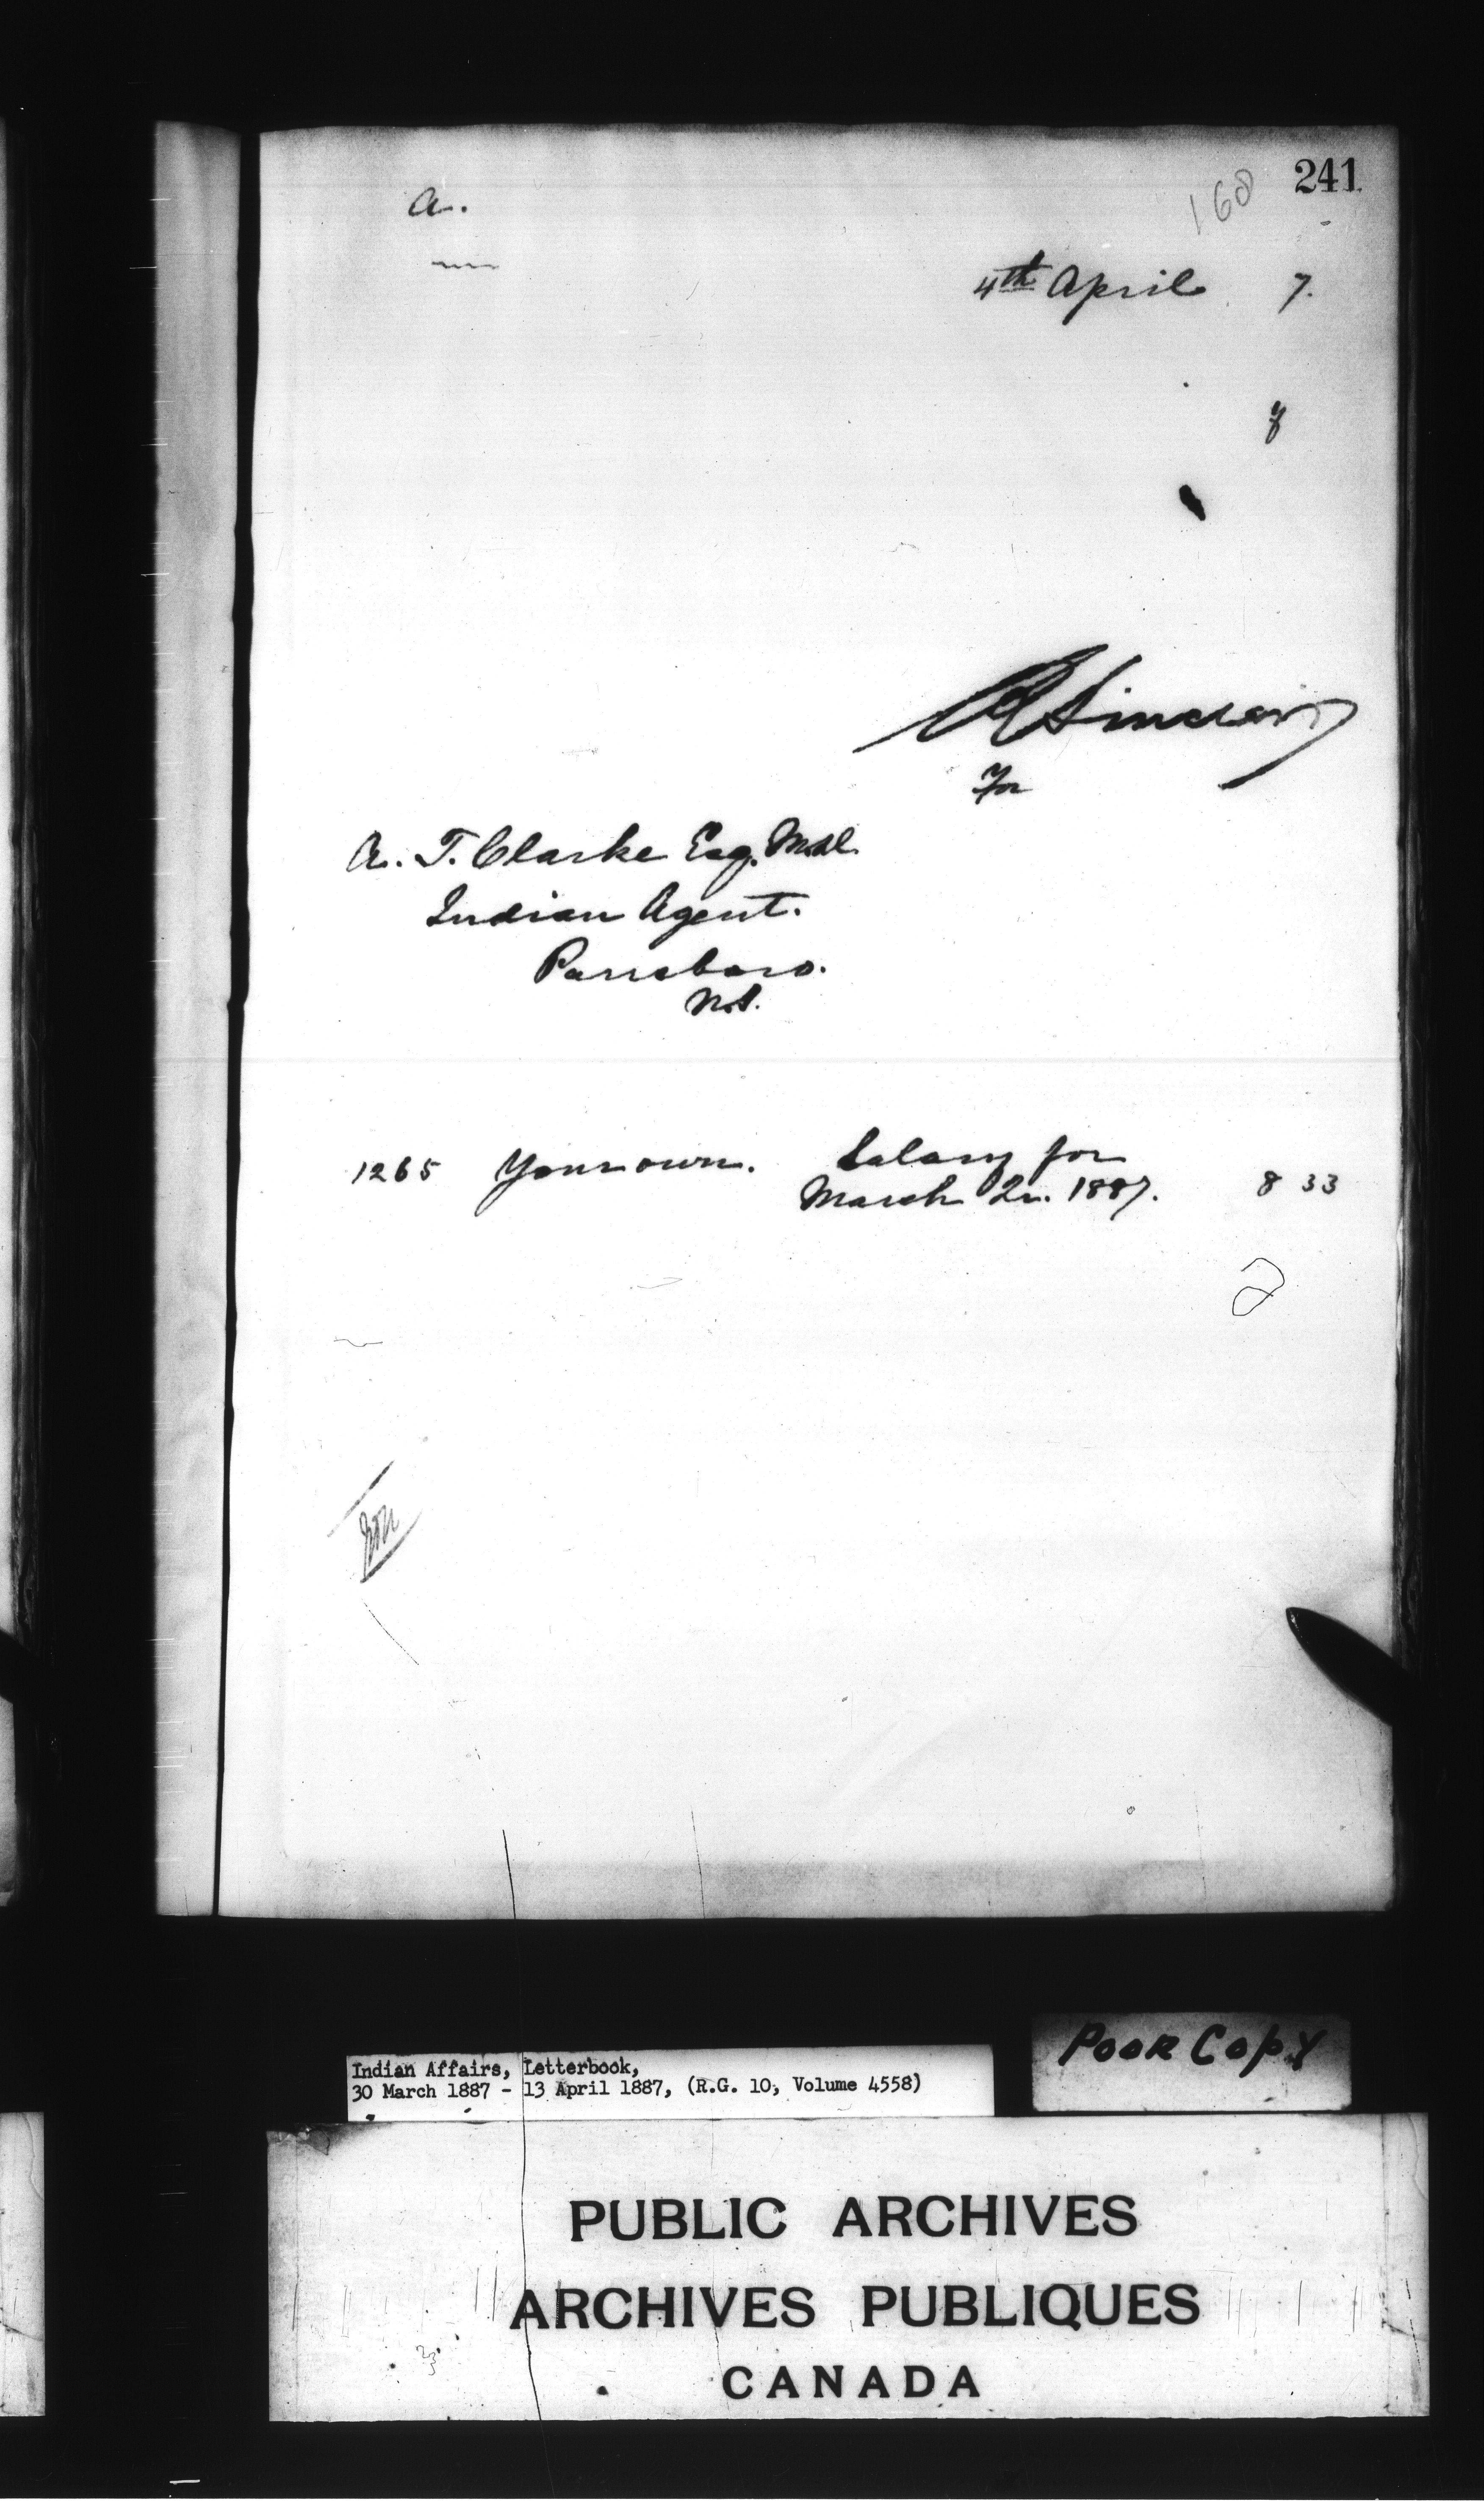 241
168
a.
4th April 7.
y
R Sinclair
For
A. T. Clarke Esq. M.D.
Indian Agent.
Parrsboro.
N.S.
1265 Your own. Salary for
March Qr. 1887. 8 33
Indian Affairs, Letterbook,
30 March 1887 - 13 April 1887, (R.G. 10, Volume 4558)
POOR COPY
PUBLIC ARCHIVES
ARCHIVES PUBLIQUES
CANADA